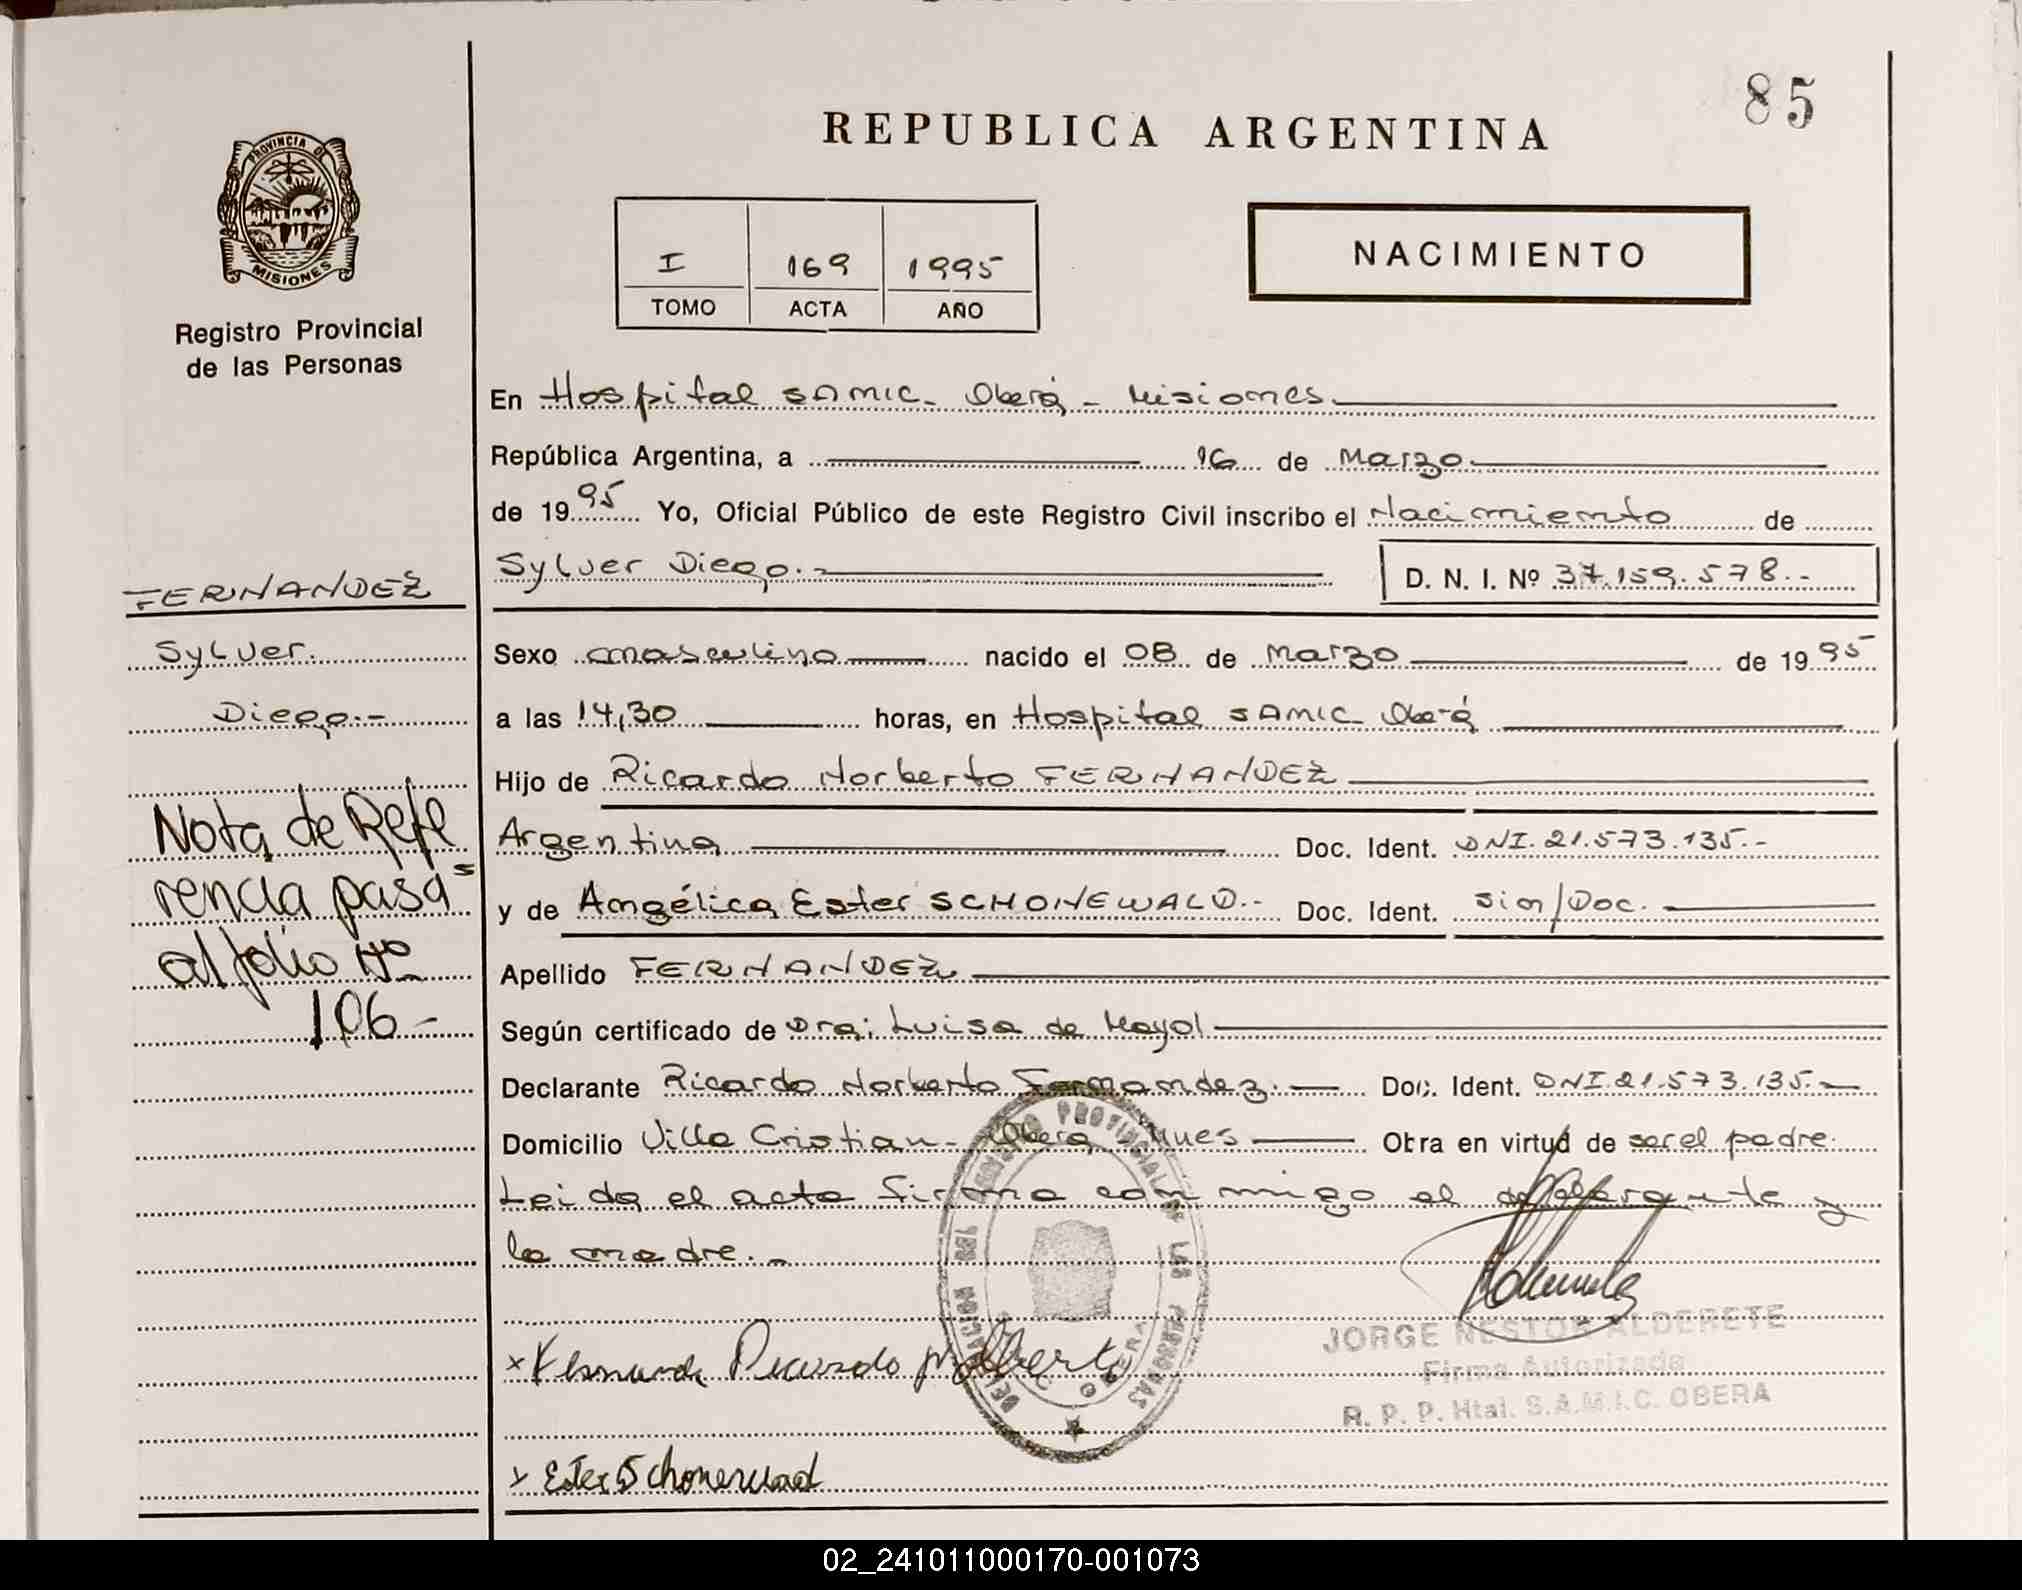 85
REPUBLICA ARGENTINA
PROVINCIA DE
MISIONES
Registro Provincial
de las Personas
I 169 1995
TOMO ACTA AÑO
NACIMIENTO
En Hospital SAMIC - Oberá - Misiones
República Argentina, a 16 de Marzo
de 1995 Yo, Oficial Público de este Registro Civil inscribo el Nacimiento de
Sylver Diego.- D. N. I. Nº 37.159.578.-
FERNANDEZ
Sylver
Diego.-
Nota de Refe
rencia pasa
al folio Nº
106-
Sexo masculino nacido el 08 de Marzo de 1995
a las 14,30 horas, en Hospital SAMIC - Oberá
Hijo de Ricardo Norberto FERNANDEZ
Argentina Doc. Ident. DNI. 21.573.135.-
y de Angélica Ester SCHONEWALD.- Doc. Ident. Sin/Doc.
Apellido FERNANDEZ
Según certificado de Dra; Luisa de Mayol
Declarante Ricardo Norberto Fernandez.- Doc. Ident. DNI.21.573.135.-
Domicilio Villa Cristian - Oberá Mnes Obra en virtud de ser el padre.
Leida el acta firma con migo el declarante y
la madre.-
REGISTRO PROVINCIAL DE LAS PERSONAS
DELEGACION
OBERA
JORGE NESTOR ALDERETE
Firma Autorizada
R. P. P. Htal. S.A.M.I.C. OBERA
x Ricardo
x Ester Schonewald
02_241011000170-001073